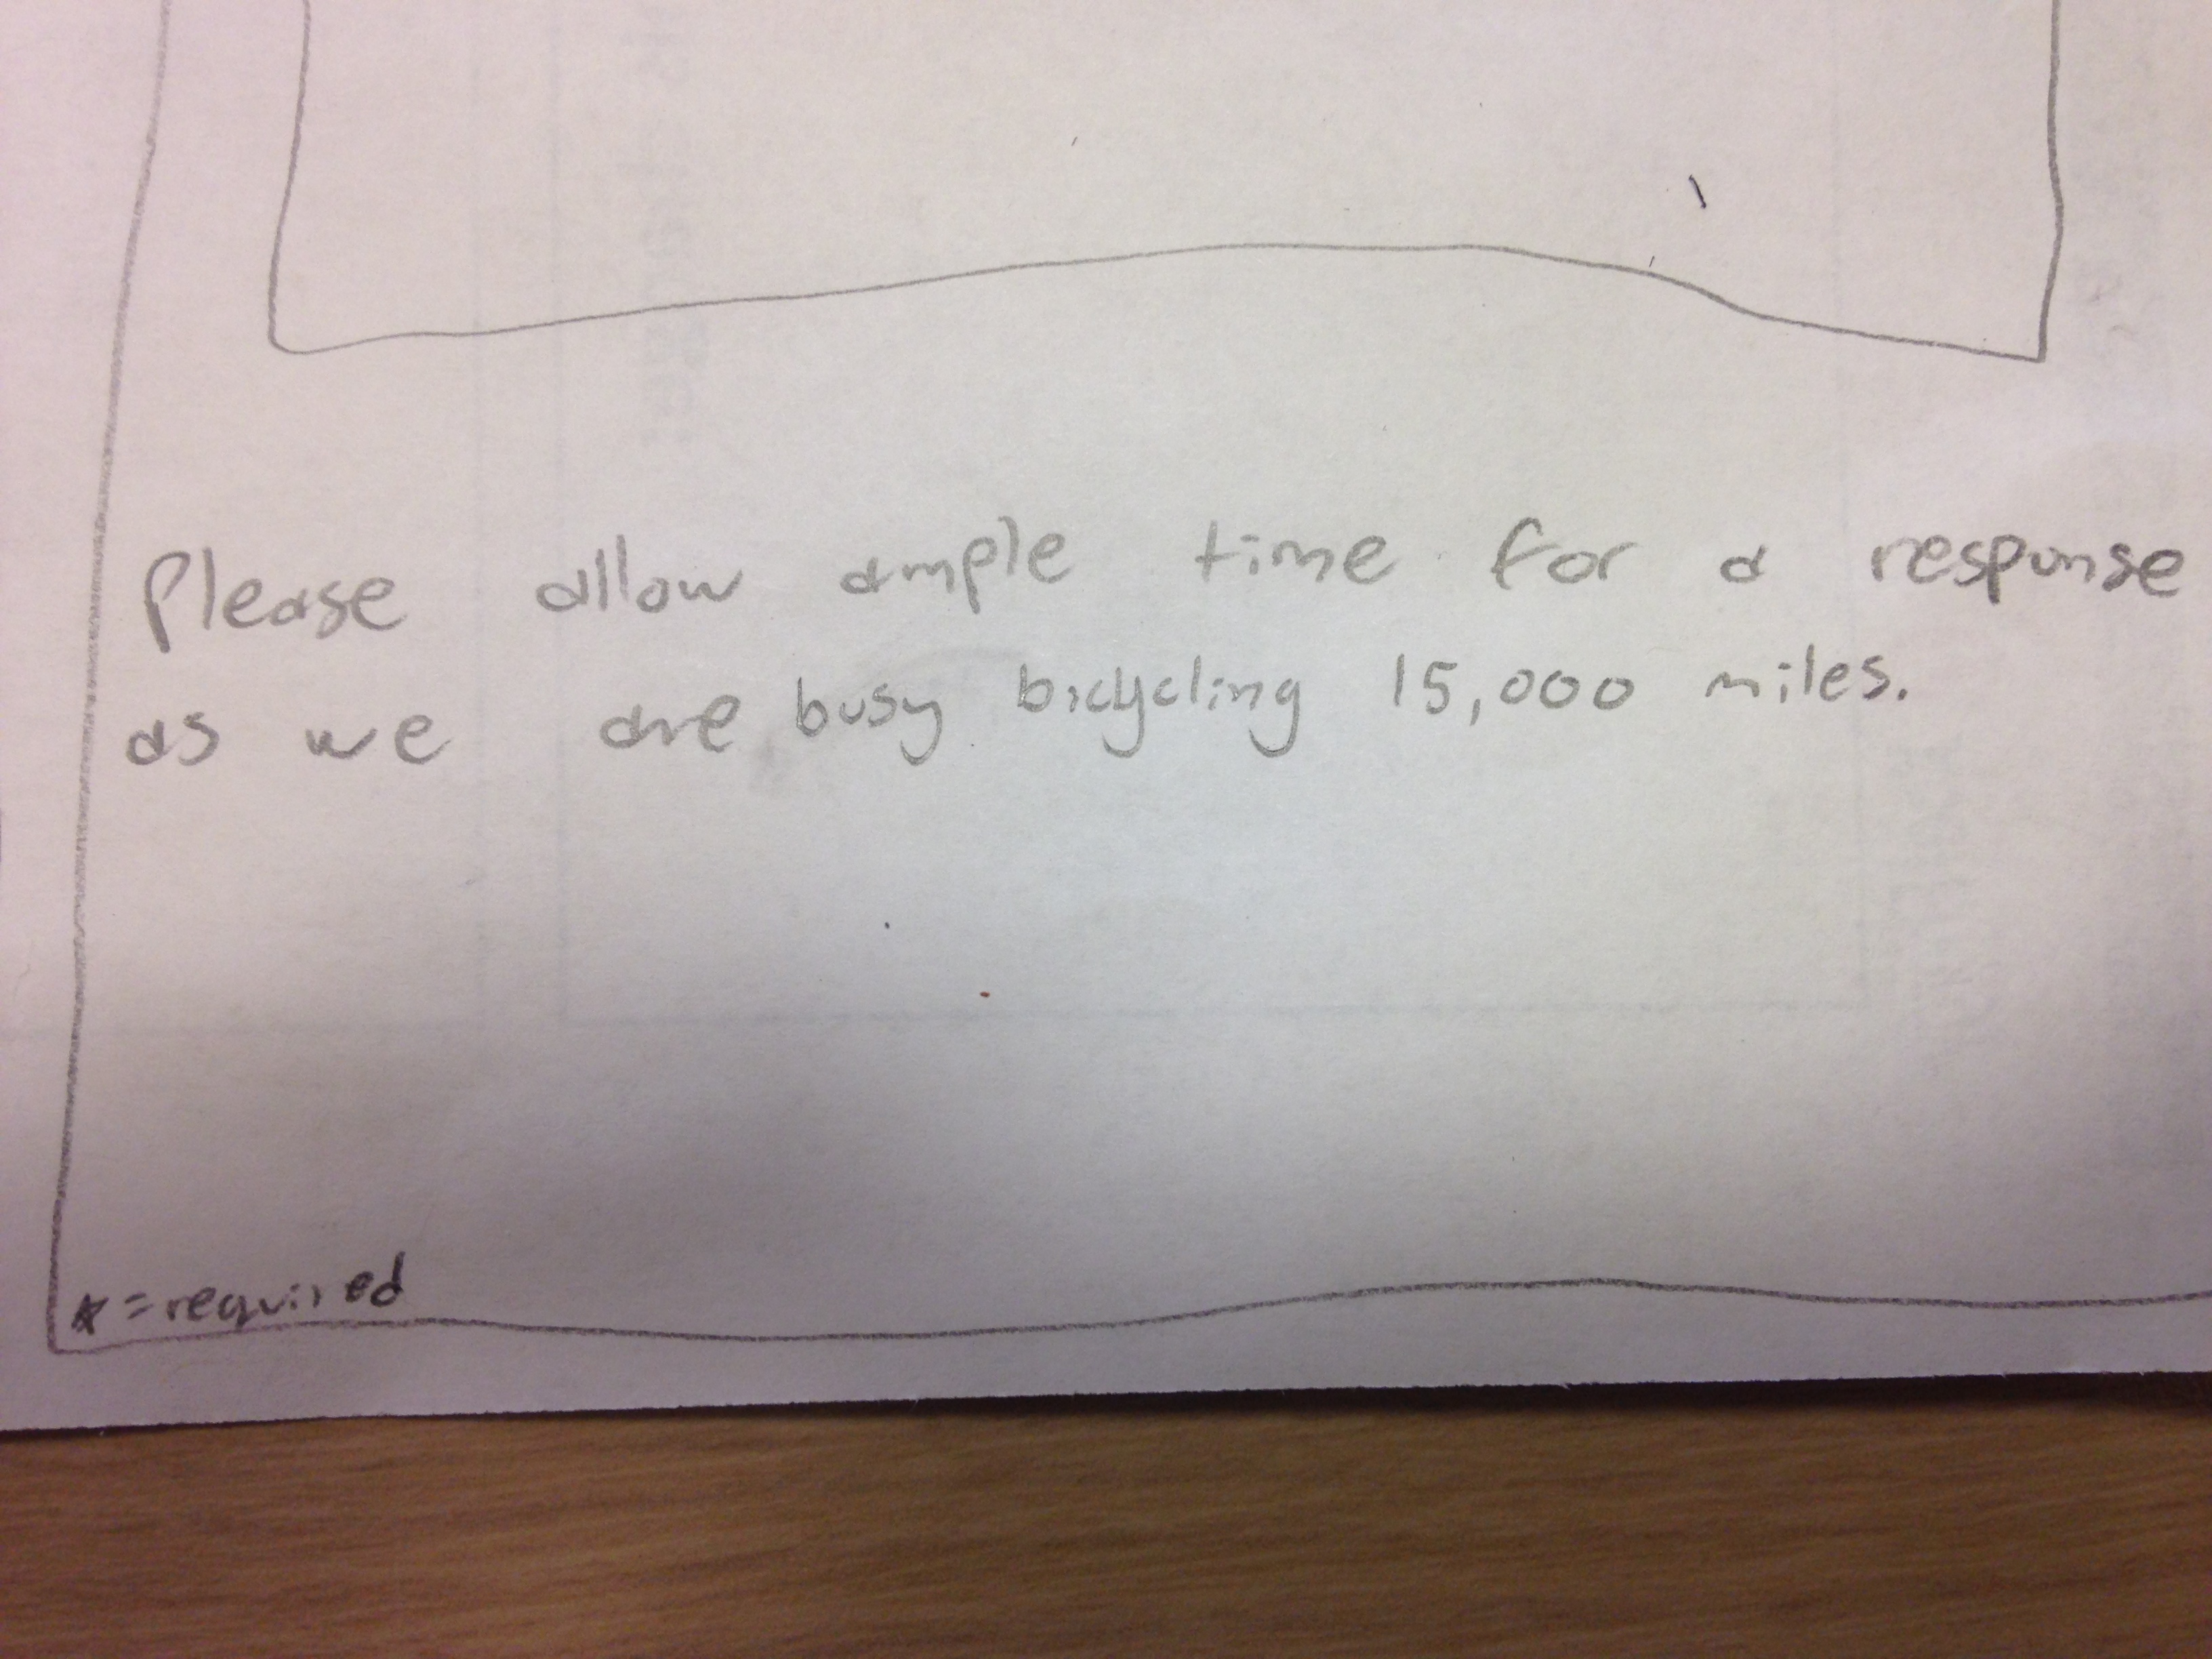 Please allow ample time for a response
as we are busy bicycling 15,000 miles.
* = required